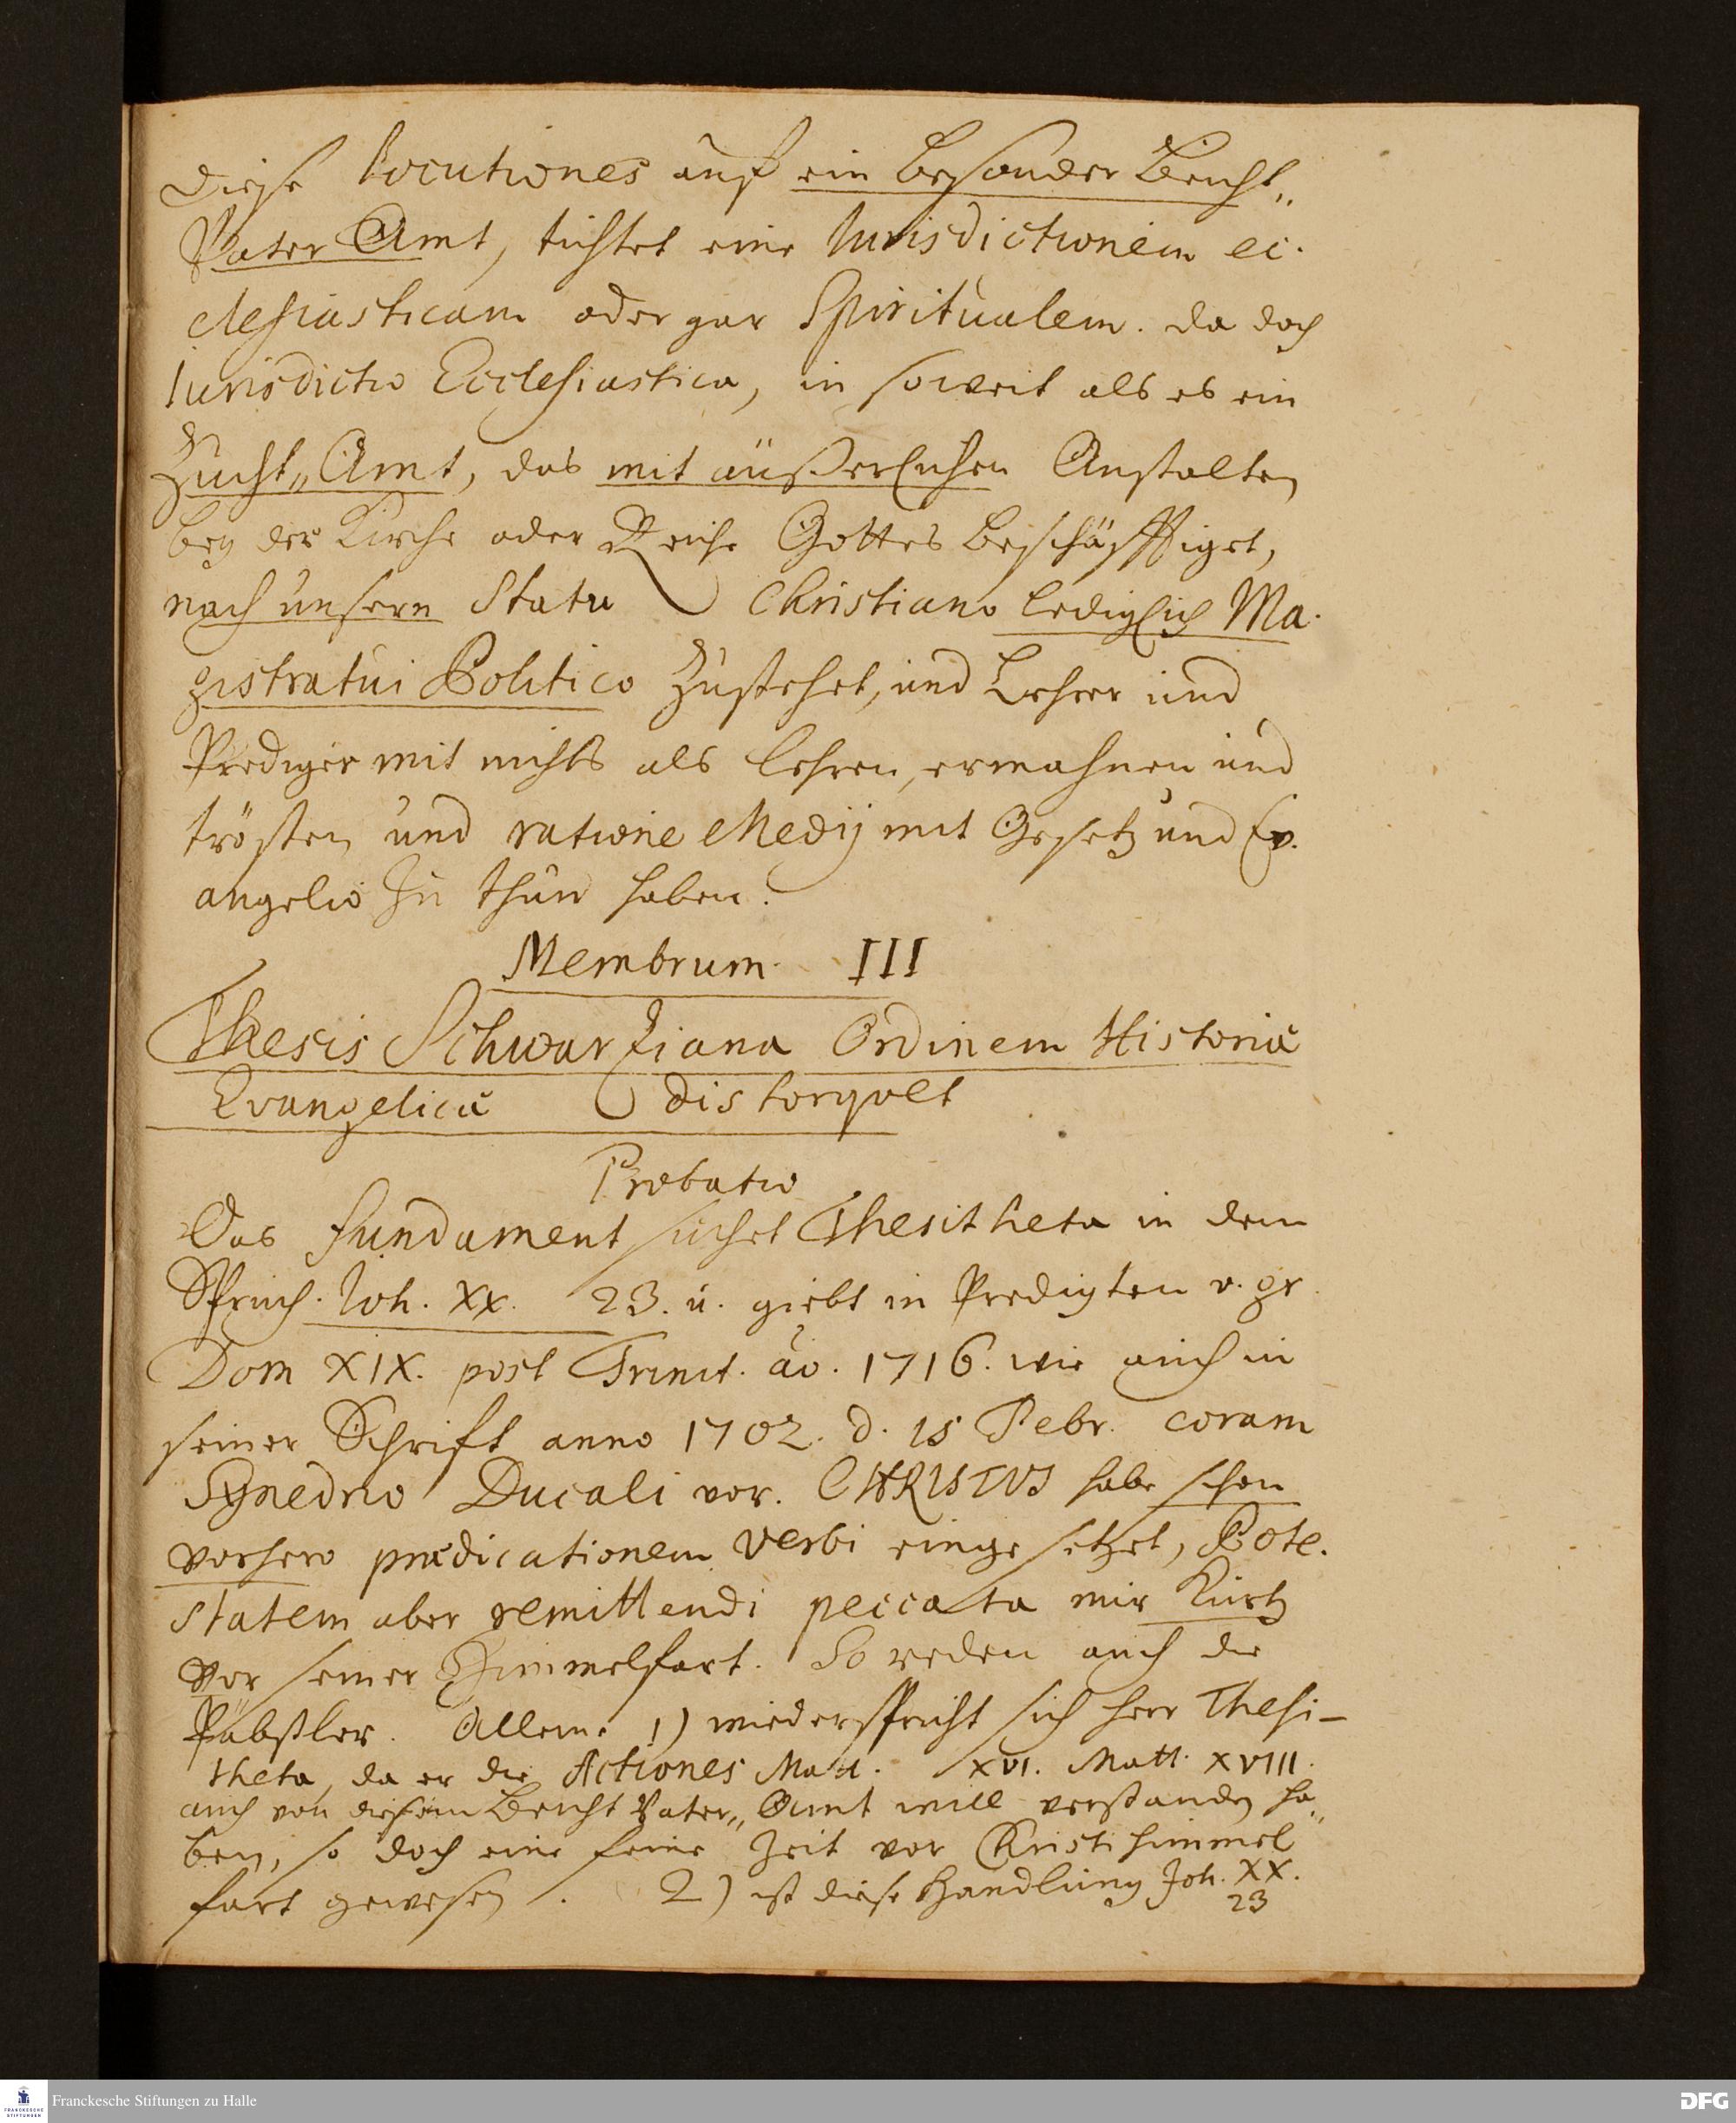 diese locutiones auf ein besonder Beicht„
Vater Amt, tichtet eine Iurisdictionem ec-
clesiasticam oder gar Spiritualem. da doch
Iurisdictio Ecclesiastica, in soweit als es ein
Zucht„Amt, das mit äußerlichen Anstalten
bey der Kirche oder Reiche Gottes beschäfftiget,
nach unsern Statu Christiano lediglich Ma-
gistratui Politico zustehet, und Lehrer und
Prediger mit nichts als lehren, ermahnen und
trösten und ratione Medij mit Gesetz und Ev-
angelio zu thun haben.
Membrum III
Thesis Schwartziana Ordinem Historiæ
Evangelicæ distorqvet
Probatio
Das fundament suchet Thesitheta in dem
Spruch. Joh. XX. 23. u. giebt in Predigten v. gr.
Dom XIX. post Trinit. ao. 1716. wie auch in
seiner Schrift anno 1702. d. 15 Febr. coram
Synedrio Ducali vor. CHRISTUS habe schon
vorhero prædicationem verbi eingesetzet, Pote-
statem aber remittendi peccata nur kurtz
vor seiner Himmelfart. So reden auch die
Päbstler. Alleine 1) wiederspricht sich herr Thesi-
theta, da er die Actiones Matt. XVI. Matt. XVIII.
auch von diesem Beicht Vater„Amt will verstanden ha„
ben, so doch eine feine Zeit vor Christi himmel„
fart gewesen. 2) ist diese Handlung Joh. XX.
23
Franckesche Stiftungen zu Halle
FRANCKESCHE STIFTUNGEN
DFG